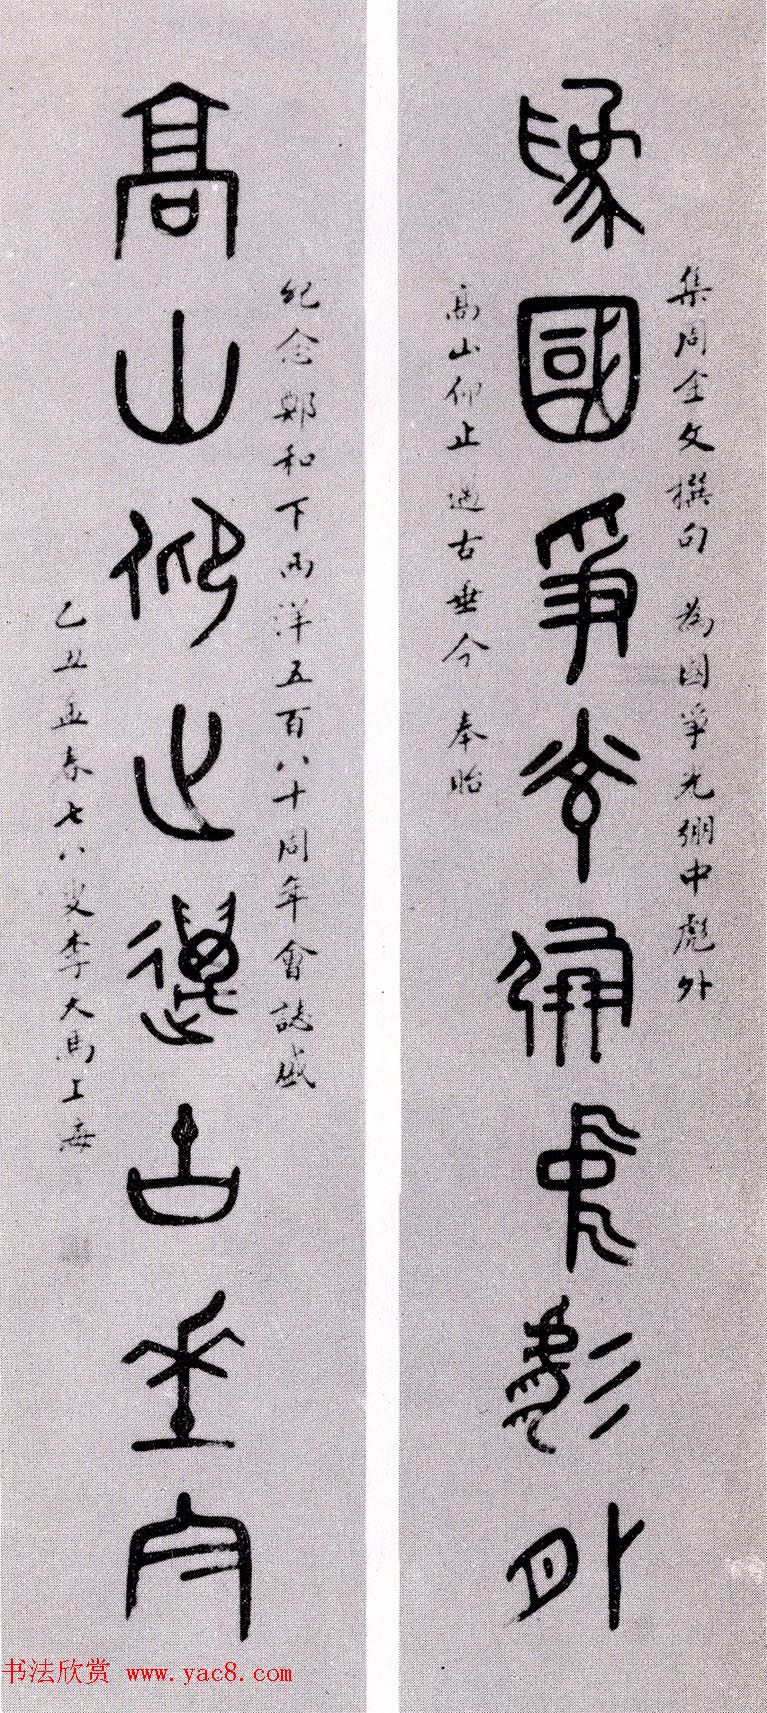 為國爭光弸中彪外
集周金文撰句　為國爭光弸中彪外
高山仰止邁古垂今　奉貽
高山仰止邁古垂今
紀念鄭和下西洋五百八十周年會誌盛
乙丑孟春七八叟李天馬上海
书法欣赏 www.yac8.com